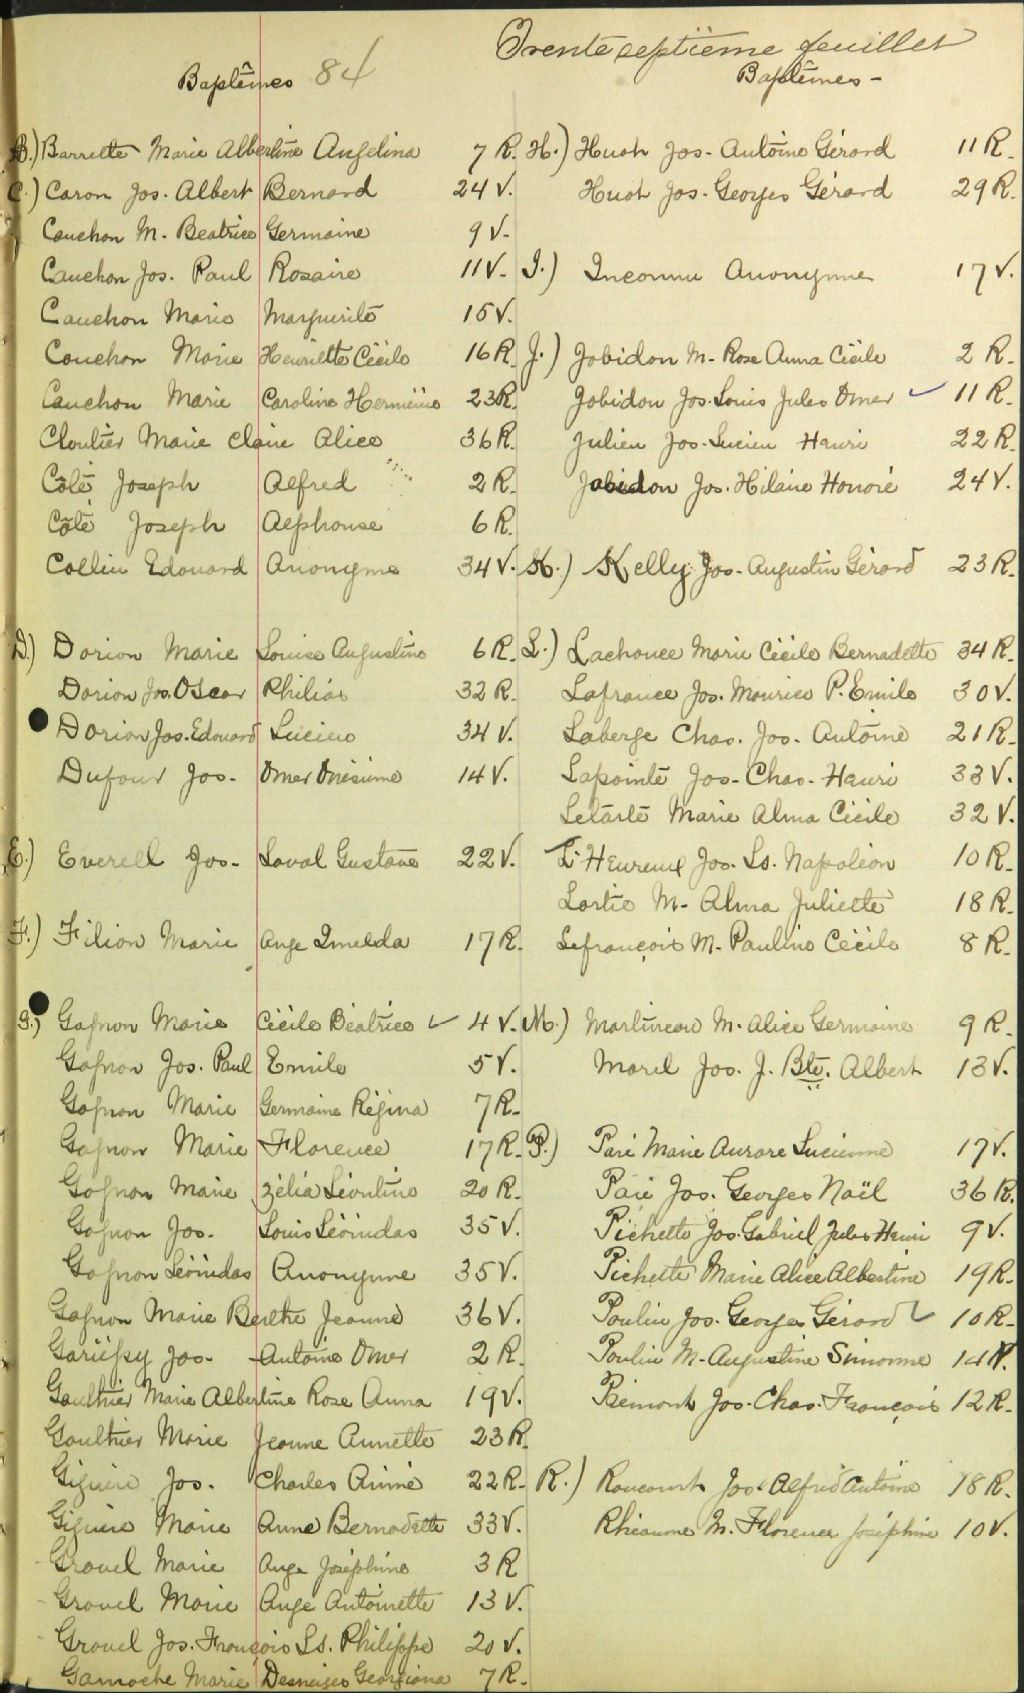 Trente septième feuillet
Baptêmes 84
B.) Barrette Marie Albertine Angelina 7 R.
C.) Caron Jos. Albert Bernard 24 V.
Cauchon M. Beatrice Germaine 9 V.
Cauchon Jos. Paul Rosaire 11 V.
Cauchon Marie Marguerite 15 V.
Cauchon Marie Henriette Cécile 16 R.
Cauchon Marie Caroline 23 R.
Cloutier Marie Claire Alice 36 R.
Côté Joseph Alfred 2 R.
Côté Joseph Alphonse 6 R.
Collin Edouard Anonyme 34 V.
D.) Dorion Marie Louise Augustine 6 R.
Dorion Jos. Oscar Philias 32 R.
Dorion Jos. Edouard Lucien 34 V.
Dufour Jos. Omer Onésime 14 V.
E.) Everell Jos. Laval Gustave 22 V.
F.) Filion Marie Ange Imelda 17 R.
G.) Gagnon Marie Cécile Béatrice ✓ 4 V.
Gagnon Jos. Paul Emile 5 V.
Gagnon Marie Germaine Régina 7 R.
Gagnon Marie Florence 17 R.
Gagnon Marie Zélia Léontine 20 R.
Gagnon Jos. Louis Léonidas 35 V.
Gagnon Léonidas Anonyme 35 V.
Gagnon Marie Berthe Jeanne 36 V.
Gariépy Jos. Antoine Omer 2 R.
Gaulthier Marie Albertine Rose Anna 19 V.
Gaulthier Marie Jeanne Annette 23 R.
Giguère Jos. Charles Aimé 22 R.
Giguère Marie Anne Bernadette 33 V.
Gravel Marie Ange Joséphine 3 R
Gravel Marie Ange Antoinette 13 V.
Gravel Jos. François Ls. Philippe 20 V.
Gamache Marie Georgiana 7 R.
Baptêmes -
H.) Huot Jos. Antoine Gérard 11 R.
Huot Jos. Georges Gérard 29 R.
I.) Inconnu Anonyme 17 V.
J.) Jobidon M. Rose Anna Cécile 2 R.
Jobidon Jos. Louis Jules Omer ✓ 11 R.
Julien Jos. Lucien Henri 22 R.
Jobidon Jos. Hilaire Honoré 24 V.
K.) Kelly Jos. Augustin Gérard 23 R.
L.) Lachance Marie Cécile Bernadette 34 R.
Lafrance Jos. Maurice P. Emile 30 V.
Laberge Chas. Jos. Antoine 21 R.
Lapointe Jos. Chas. Henri 33 V.
Letarte Marie Alma Cécile 32 V.
L'Heureux Jos. Ls. Napoléon 10 R.
Lortie M. Alma Juliette 18 R.
Lefrançois M. Pauline Cécile 8 R.
M.) Martineau M. Alice Germaine 9 R.
Morel Jos. J. Bte. Albert 13 V.
P.) Paré Marie Aurore Lucienne 17 V.
Paré Jos. Georges Noël 36 R.
Pichette Jos. Gabriel Jules Henri 9 V.
Pichette Marie Alice Albertine 19 R.
Poulin Jos. Georges Gérard ✓ 10 R.
Poulin M. Augustine Simonne 14 R.
Prémont Jos. Chas. François 12 R.
R.) Rancourt Jos. Alfred Antoine 18 R.
Rhéaume M. Florence Joséphine 10 V.